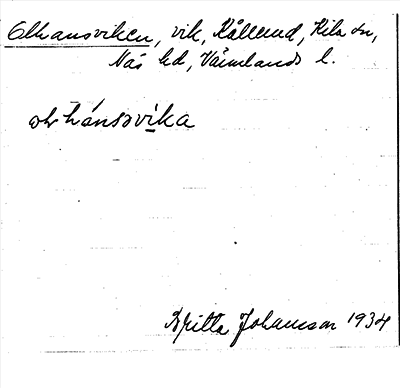 Olhansviken, vik, Kållerud, Kila sn,
Näs hd, Värmlands l.
ωlhánsəvika
Britta Johansson 1934